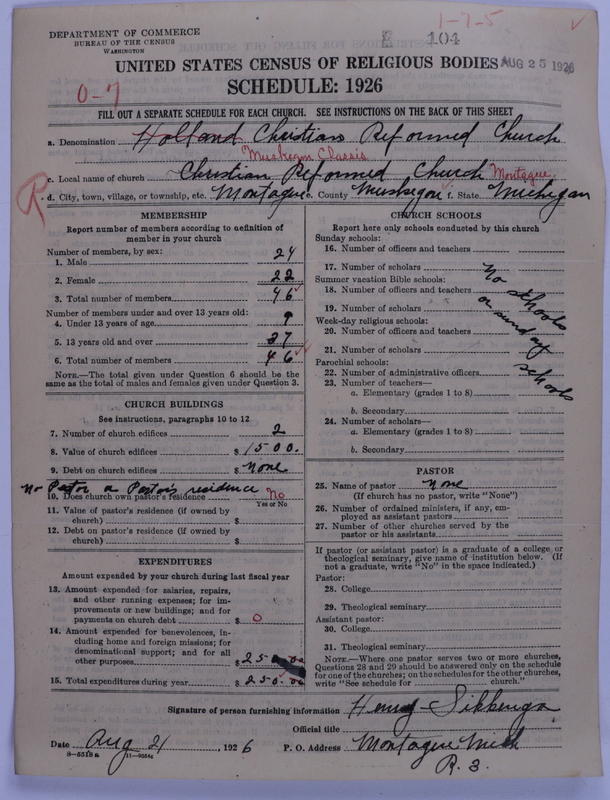 1-7-5
DEPARTMENT OF COMMERCE
BUREAU OF THE CENSUS
WASHINGTON
E 104
AUG 25 1926
UNITED STATES CENSUS OF RELIGIOUS BODIES
SCHEDULE: 1926
0-7
FILL OUT A SEPARATE SCHEDULE FOR EACH CHURCH. SEE INSTRUCTIONS ON THE BACK OF THIS SHEET
a. Denomination Holland Christian Reformed Church
Muskegon Classis
c. Local name of church Christian Reformed Church Montague
R
d. City, town, village, or township, etc. Montague e. County Muskegon f. State Michigan
MEMBERSHIP
Report number of members according to definition of
member in your church
Number of members, by sex:
1. Male 24
2. Female 22
3. Total number of members 46
Number of members under and over 13 years old:
4. Under 13 years of age 9
5. 13 years old and over 37
6. Total number of members 46
NOTE.—The total given under Question 6 should be
same as the total of males and females given under Question 3.
CHURCH BUILDINGS
See instructions, paragraphs 10 to 12
7. Number of church edifices 2
8. Value of church edifices $ 1500.
9. Debt on church edifices $ none
No Pastor or Pastor's residence
10. Does church own pastor's residence No
Yes or No
11. Value of pastor's residence (if owned by
church) $
12. Debt on pastor's residence (if owned by
church) $
EXPENDITURES
Amount expended by your church during last fiscal year
13. Amount expended for salaries, repairs,
and other running expenses; for im-
provements or new buildings; and for
payments on church debt $ 0
14. Amount expended for benevolences, in-
cluding home and foreign missions; for
denominational support; and for all
other purposes $ 250.00
15. Total expenditures during year $ 250.00
CHURCH SCHOOLS
Report here only schools conducted by this church
Sunday schools:
16. Number of officers and teachers
17. Number of scholars
Summer vacation Bible schools:
18. Number of officers and teachers
19. Number of scholars
Week-day religious schools:
20. Number of officers and teachers
21. Number of scholars
Parochial schools:
22. Number of administrative officers
23. Number of teachers—
a. Elementary (grades 1 to 8)
b. Secondary
24. Number of scholars—
a. Elementary (grades 1 to 8)
b. Secondary
No schools
or sunday
schools
PASTOR
25. Name of pastor none
(If church has no pastor, write "None")
26. Number of ordained ministers, if any, em-
ployed as assistant pastors
27. Number of other churches served by the
pastor or his assistants
If pastor (or assistant pastor) is a graduate of a college or
theological seminary, give name of institution below. (If
not a graduate, write "No" in the space indicated.)
Pastor:
28. College
29. Theological seminary
Assistant pastor:
30. College
31. Theological seminary
NOTE.—Where one pastor serves two or more churches,
Questions 28 and 29 should be answered only on the schedule
for one of the churches; on the schedules for the other churches,
write "See schedule for church."
Signature of person furnishing information Henry Sikkenga
Official title
Date Aug 21, 1926 P. O. Address Montague Mich
R. 3.
8-5518a 11-9554a